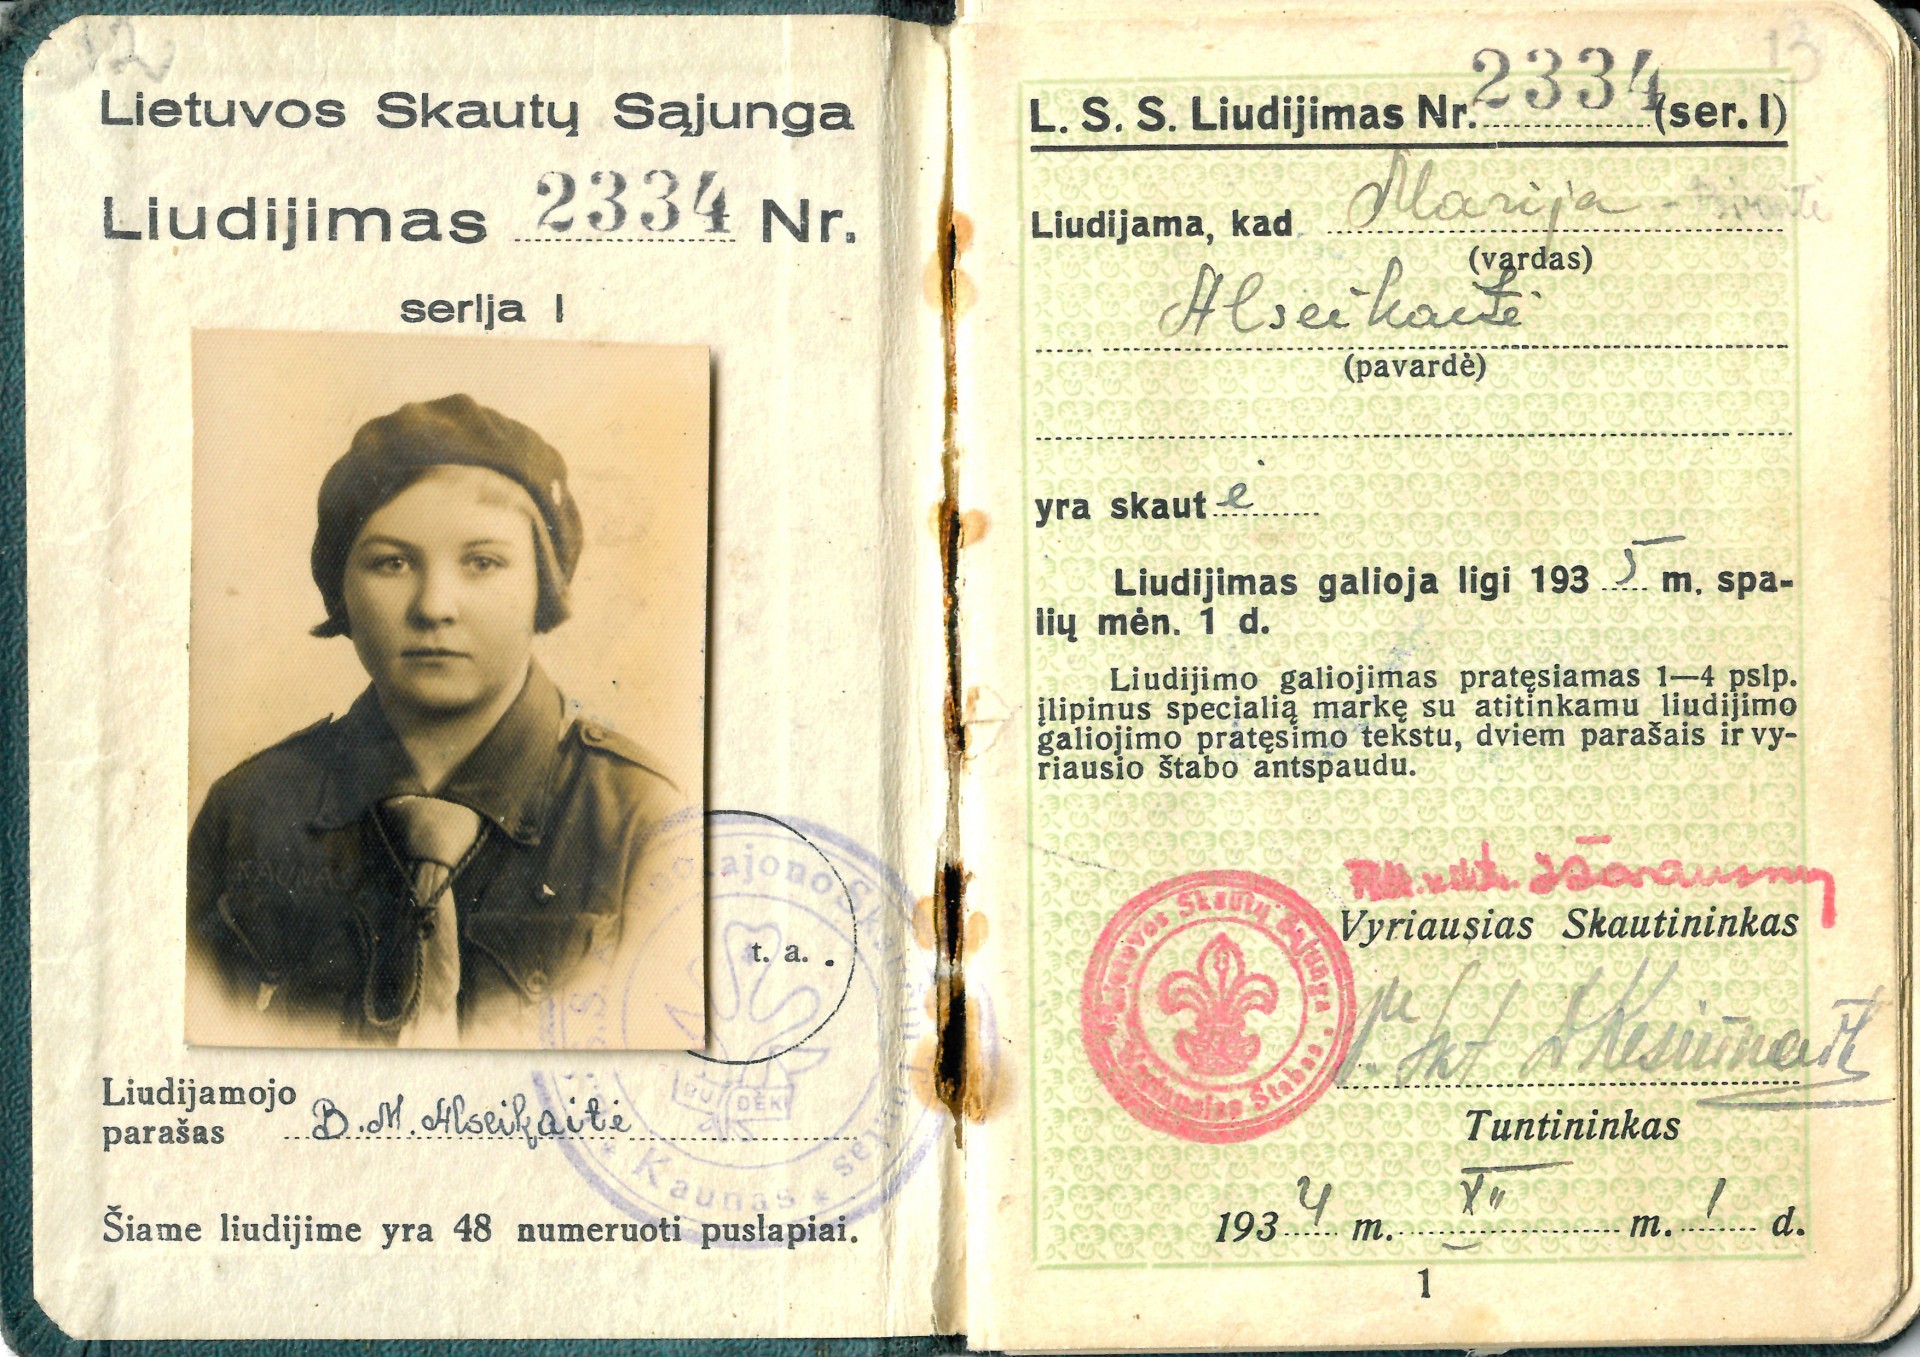 12
Lietuvos Skautų Sąjunga
Liudijimas 2334 Nr.
serija I
t. a.
Liudijamojo
parašas B. M. Alseikaitė
Kaunas
BUDĖK!
Šiame liudijime yra 48 numeruoti puslapiai.
13
L. S. S. Liudijimas Nr. 2334 (ser. I)
Liudijama, kad Marija
(vardas)
Alseikaitė
(pavardė)
yra skautė
Liudijimas galioja ligi 1935 m. spa-
lių mėn. 1 d.
Liudijimo galiojimas pratęsiamas 1—4 pslp.
įlipinus specialią markę su atitinkamu liudijimo
galiojimo pratęsimo tekstu, dviem parašais ir vy-
riausio štabo antspaudu.
Vyriausias Skautininkas
Lietuvos Skautų Sąjunga
Štabas
Tuntininkas
1934 m. XII m. 1 d.
1